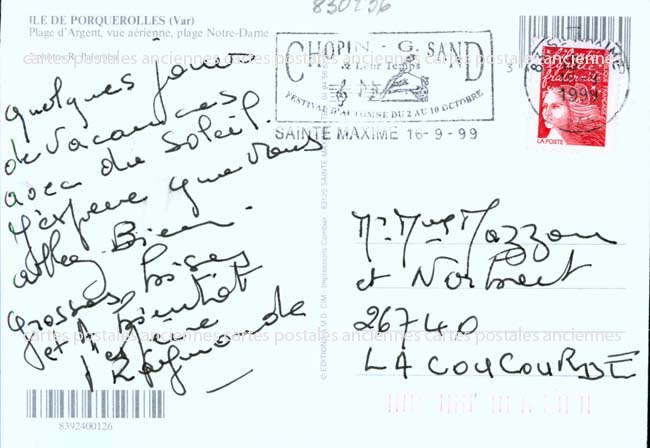 830236
ILE DE PORQUEROLLES (Var)
Plage d'Argent, vue aérienne, plage Notre-Dame
CHOPIN - G. SAND
FESTIVAL D'AUTOMNE DU 2 AU 10 OCTOBRE
SAINTE MAXIME 16-9-99
1999
liberté
égalité
fraternité
LA POSTE
quelques jours
de vacances
avec du soleil.
J'espère que vous
allez Bien.
Grosses bises
et A bientôt
Raymonde
Mr Mme Mazzon
et Norbert
26740
LA COUCOURDE
cartes postales anciennes cartes postales anciennes cartes postales anciennes
cartes postales anciennes cartes postales anciennes cartes postales anciennes
8392400126